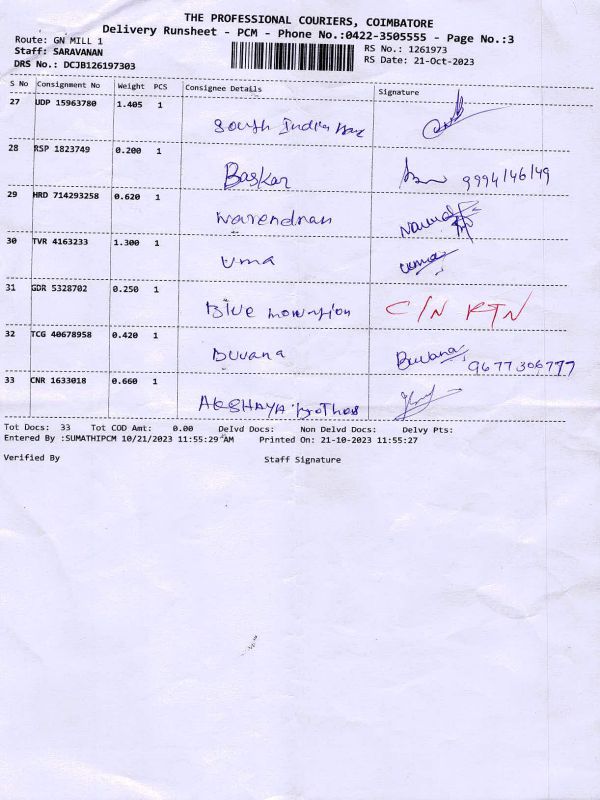 THE PROFESSIONAL COURIERS, COIMBATORE
Delivery Runsheet - PCM - Phone No.:0422-3505555 - Page No.:3
Route: GN MILL 1
RS No.: 1261973
Staff: SARAVANAN
RS Date: 21-Oct-2023
DRS No.: DCJB126197303
S No Consignment No Weight PCS Consignee Details Signature
27 UDP 15963780 1.405 1
South India
28 RSP 1823749 0.200 1
Baskar 9994146149
29 HRD 714293258 0.620 1
Narendran
30 TVR 4163233 1.300 1
Uma uma
31 GDR 5328702 0.250 1
Blue C/N RTN
32 TCG 40678958 0.420 1
Buvana Buvana 9677306777
33 CNR 1633018 0.660 1
AKSHAYA
Tot Docs: 33 Tot COD Amt: 0.00 Delvd Docs: Non Delvd Docs: Delvy Pts:
Entered By :SUMATHIPCM 10/21/2023 11:55:29 AM Printed On: 21-10-2023 11:55:27
Verified By Staff Signature